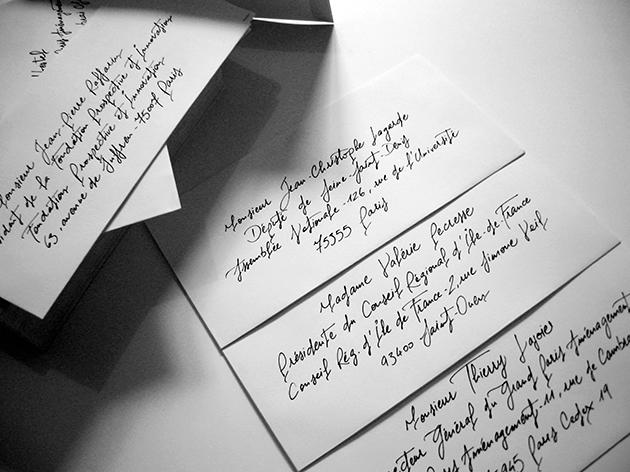 Monsieur Jean-Pierre Raffarin
de la Fondation Prospective et Innovation
Fondation Prospective et Innovation
63, avenue de Suffren - 75007 Paris
Monsieur Jean-Christophe Lagarde
Député de Seine-Saint-Denis
Assemblée Nationale - 126, rue de l'Université
75355 Paris
Madame Valérie Pecresse
Présidente du Conseil Régional d'Île-de-France
Conseil Rég. d'Île de France - 2, rue Simone Veil
93400 Saint-Ouen
Monsieur Thierry Lajoie
Général du Grand Paris Aménagement
Aménagement - 11, rue de
Paris Cedex 19